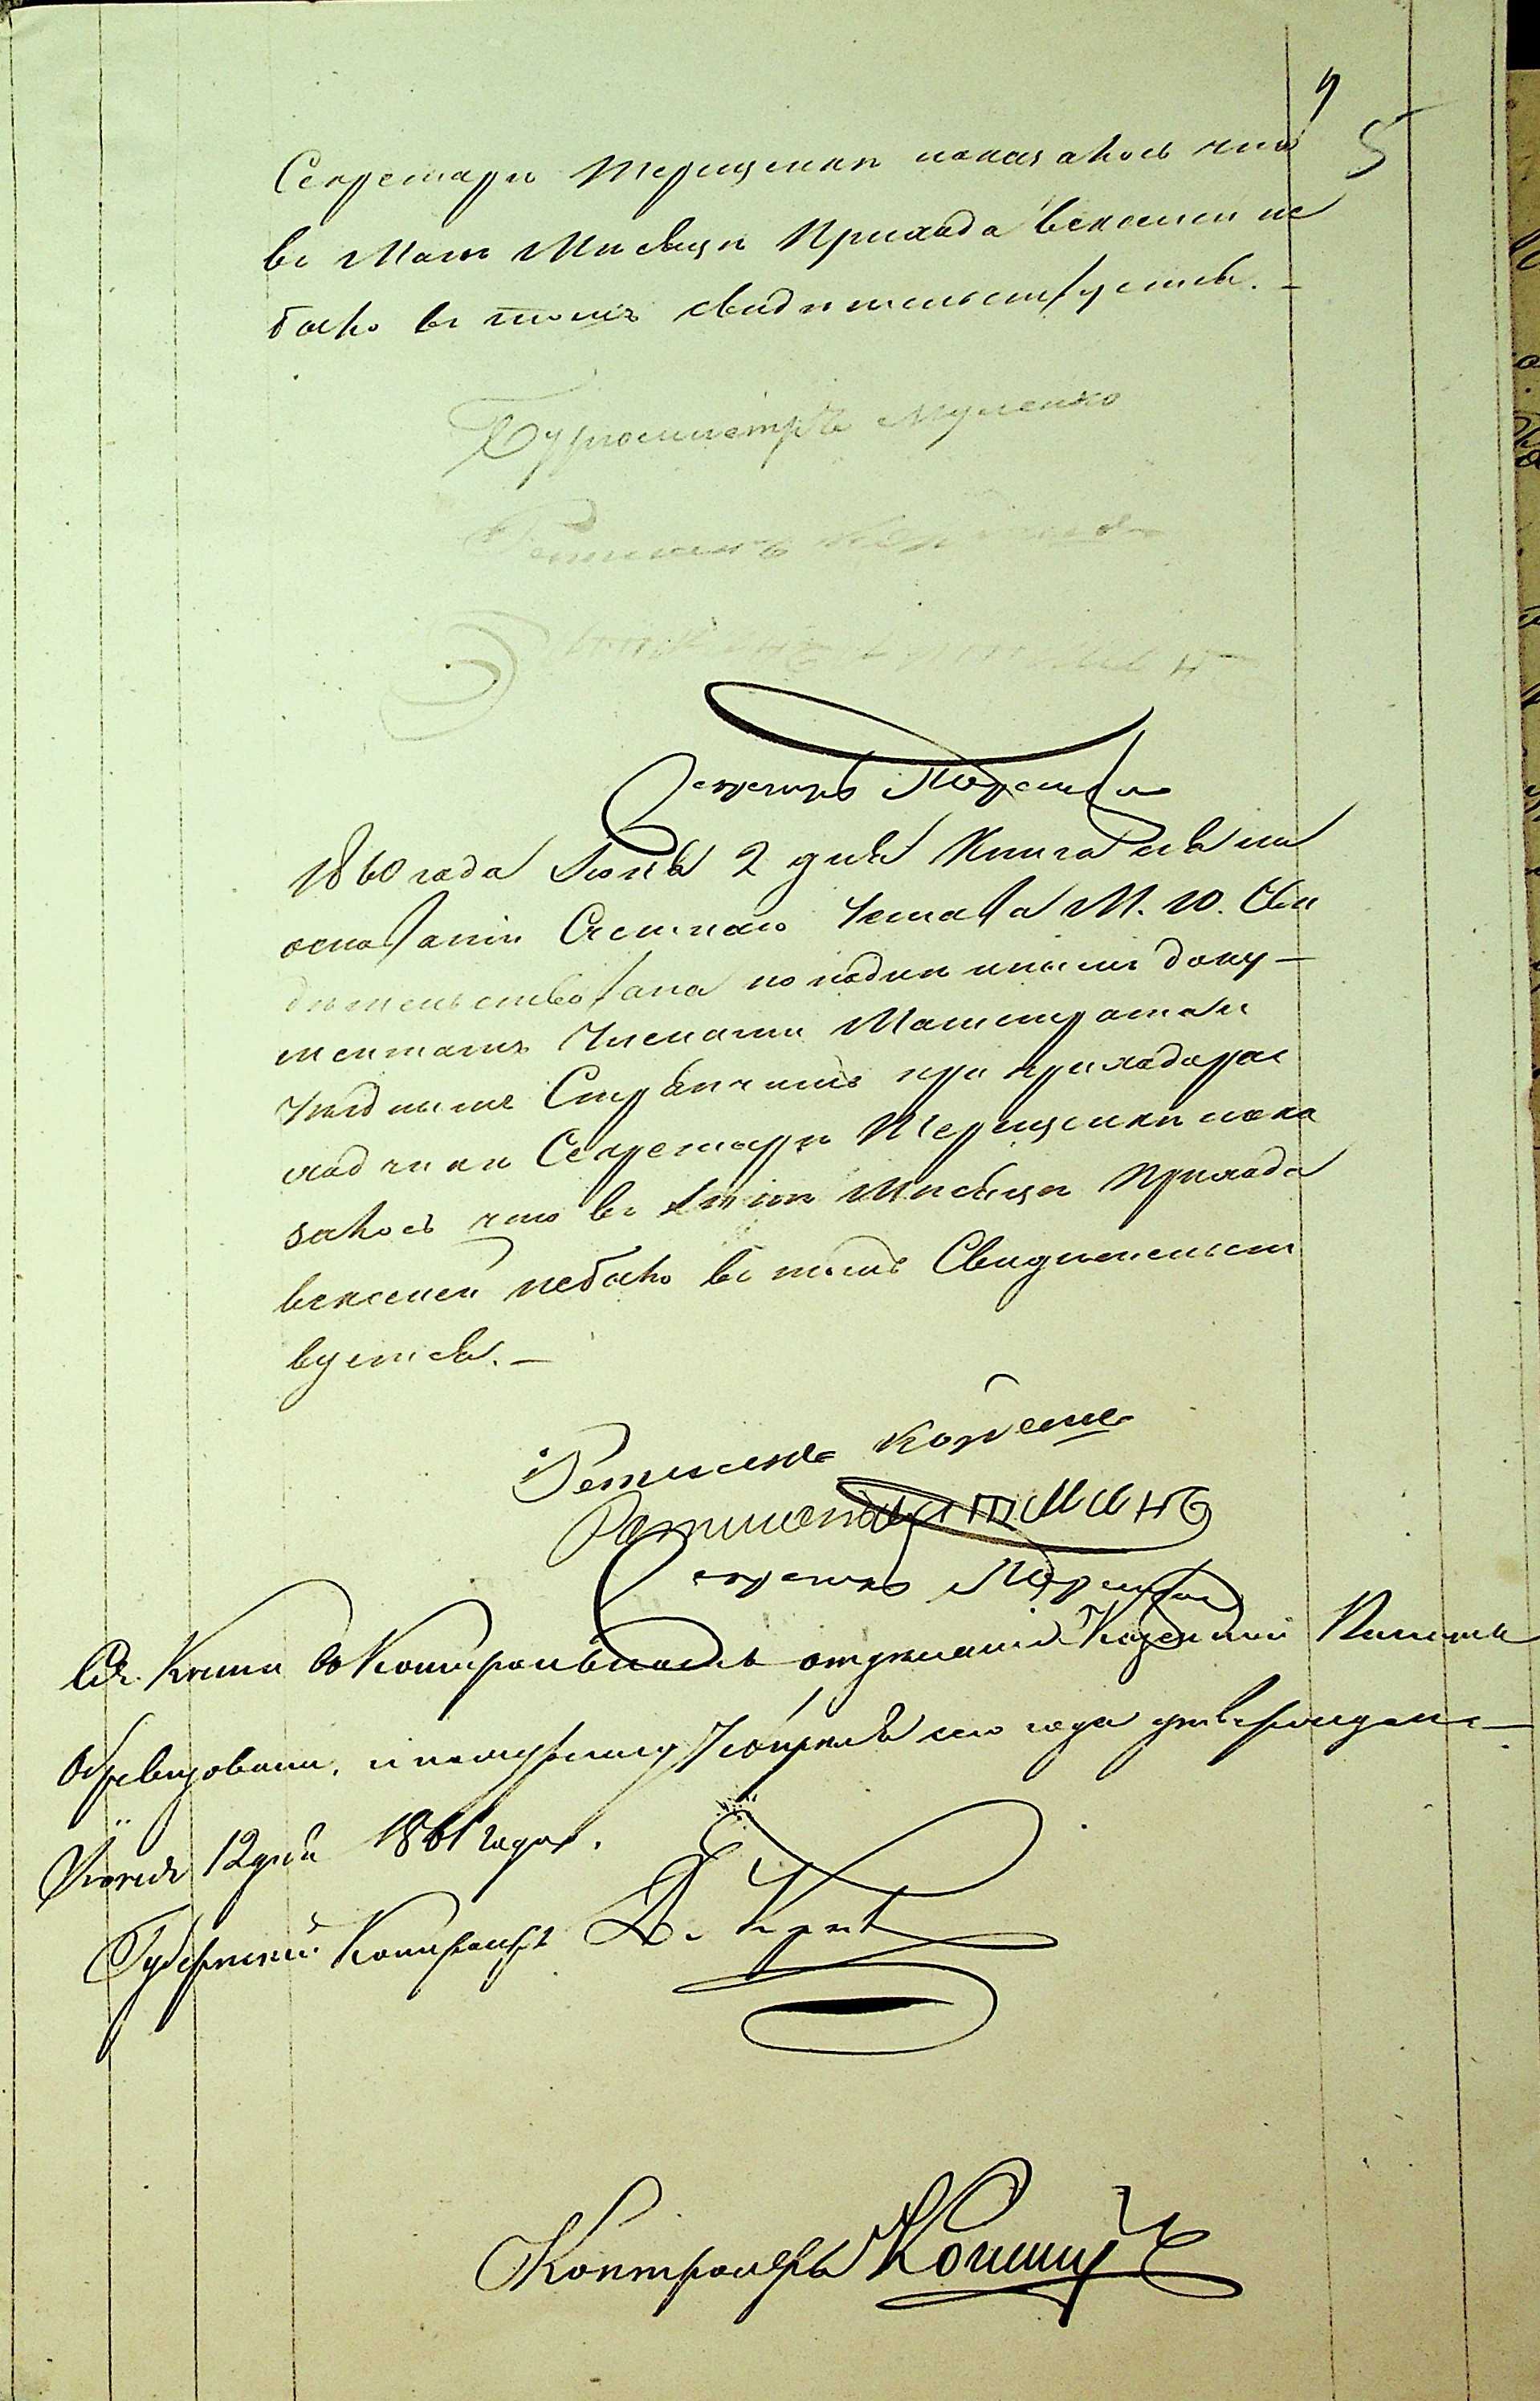 5
Секретаря Терещенки показалось что
въ Маѣ Мѣсяцѣ Прихода векселей не
было въ томъ свидѣтельствуется. –
Бургомистръ
Ратманъ
Секретарь Терещенко
1860 года Iюня 2 дня Книга сія на
основаніи Счетнаго Устава М. Ю. Сви
дѣтельствована по подлиннымъ доку–
ментамъ Членами Магистрата и
Уѣзднымъ Стряпчимъ при приходорас
ходчикѣ Секретарѣ Терещенкѣ пока
залось что въ Мѣсяцѣ Прихода
векселей небыло въ томъ Свидѣтельст
вуется. –
Ратманъ
Ратманъ
Секретарь Терещенко
Сія Книга въ Контрольномъ отдѣленіи Казенной Палаты
Обревизована, и сего года утверждена –
Iюня 12 дня 1861 года.
Губернскій Контролеръ Д.
Контролеръ